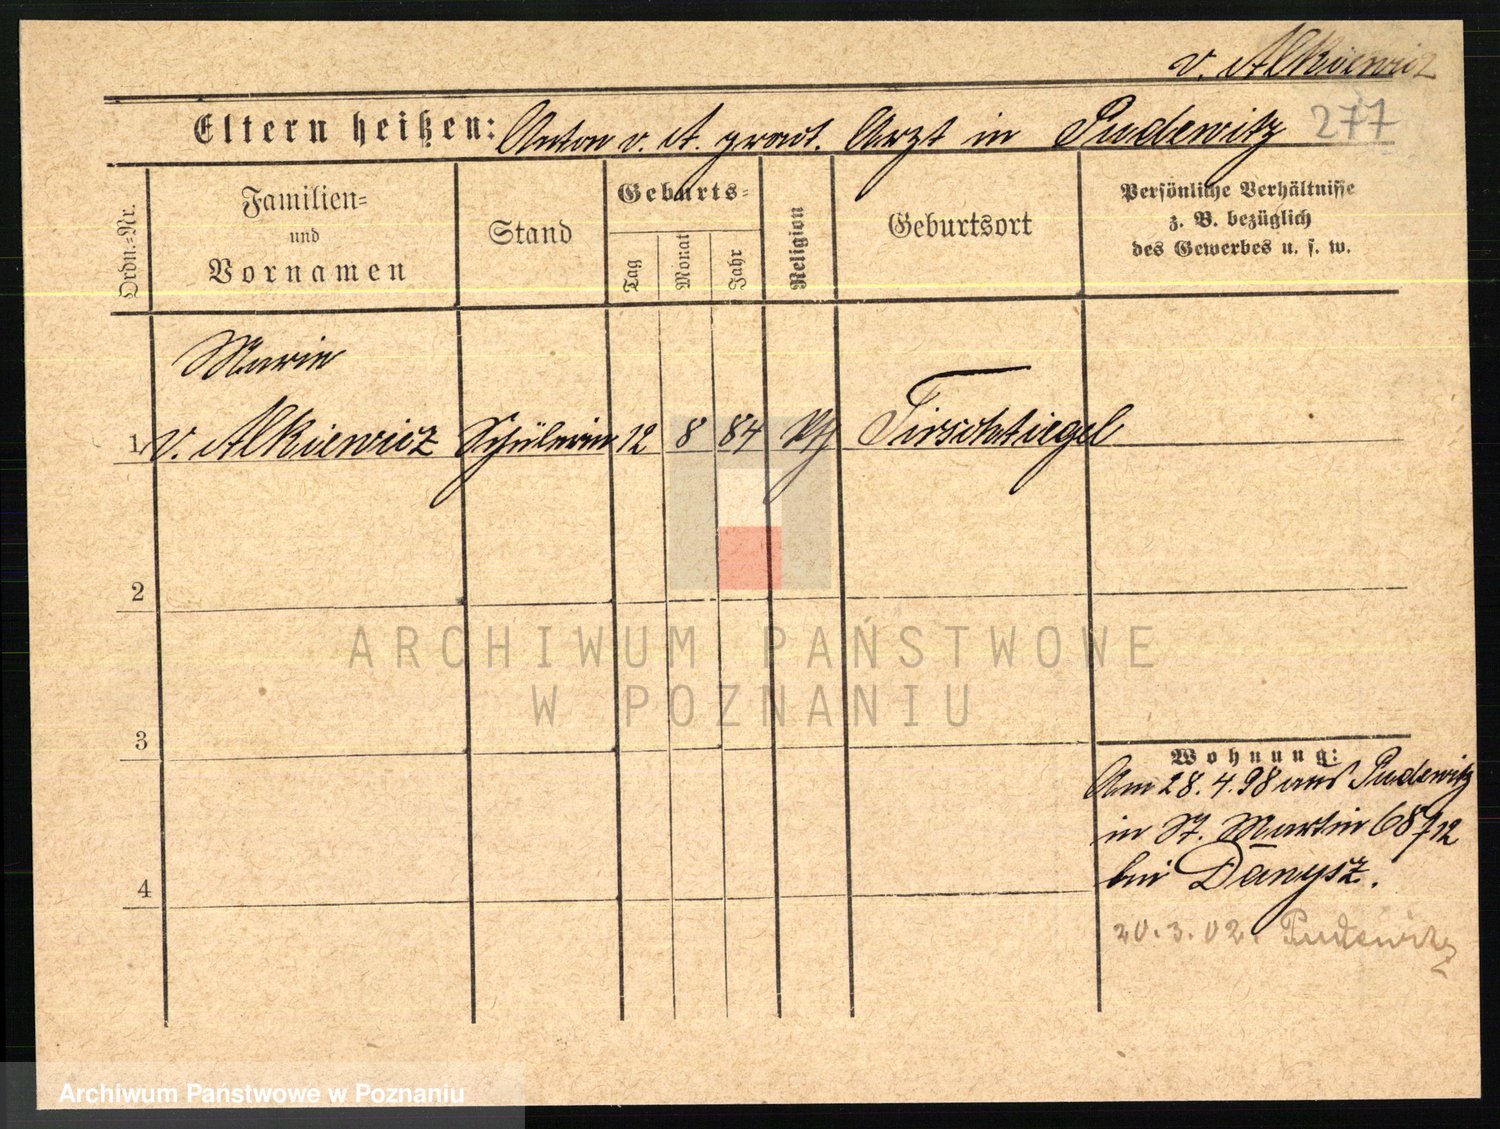 v. Alkiewicz
277
Eltern heißen: Anton v. A. prakt. Arzt in Pudewitz
Ordn.=Nr.
Familien=
und
Vornamen
Stand
Geburts=
Tag
Monat
Jahr
Religion
Geburtsort
Persönliche Verhältnisse
z. B. bezüglich
des Gewerbes u. s. w.
Marie
1 v. Alkiewicz Schülerin 12 8 84 Tirschtiegel
2
ARCHIWUM PAŃSTWOWE
W POZNANIU
3
Wohnung:
Am 28.4.98 aus Pudewitz
in St. Martin 68/12
bei Danysz.
4
20.3.02. Pudewitz
Archiwum Państwowe w Poznaniu